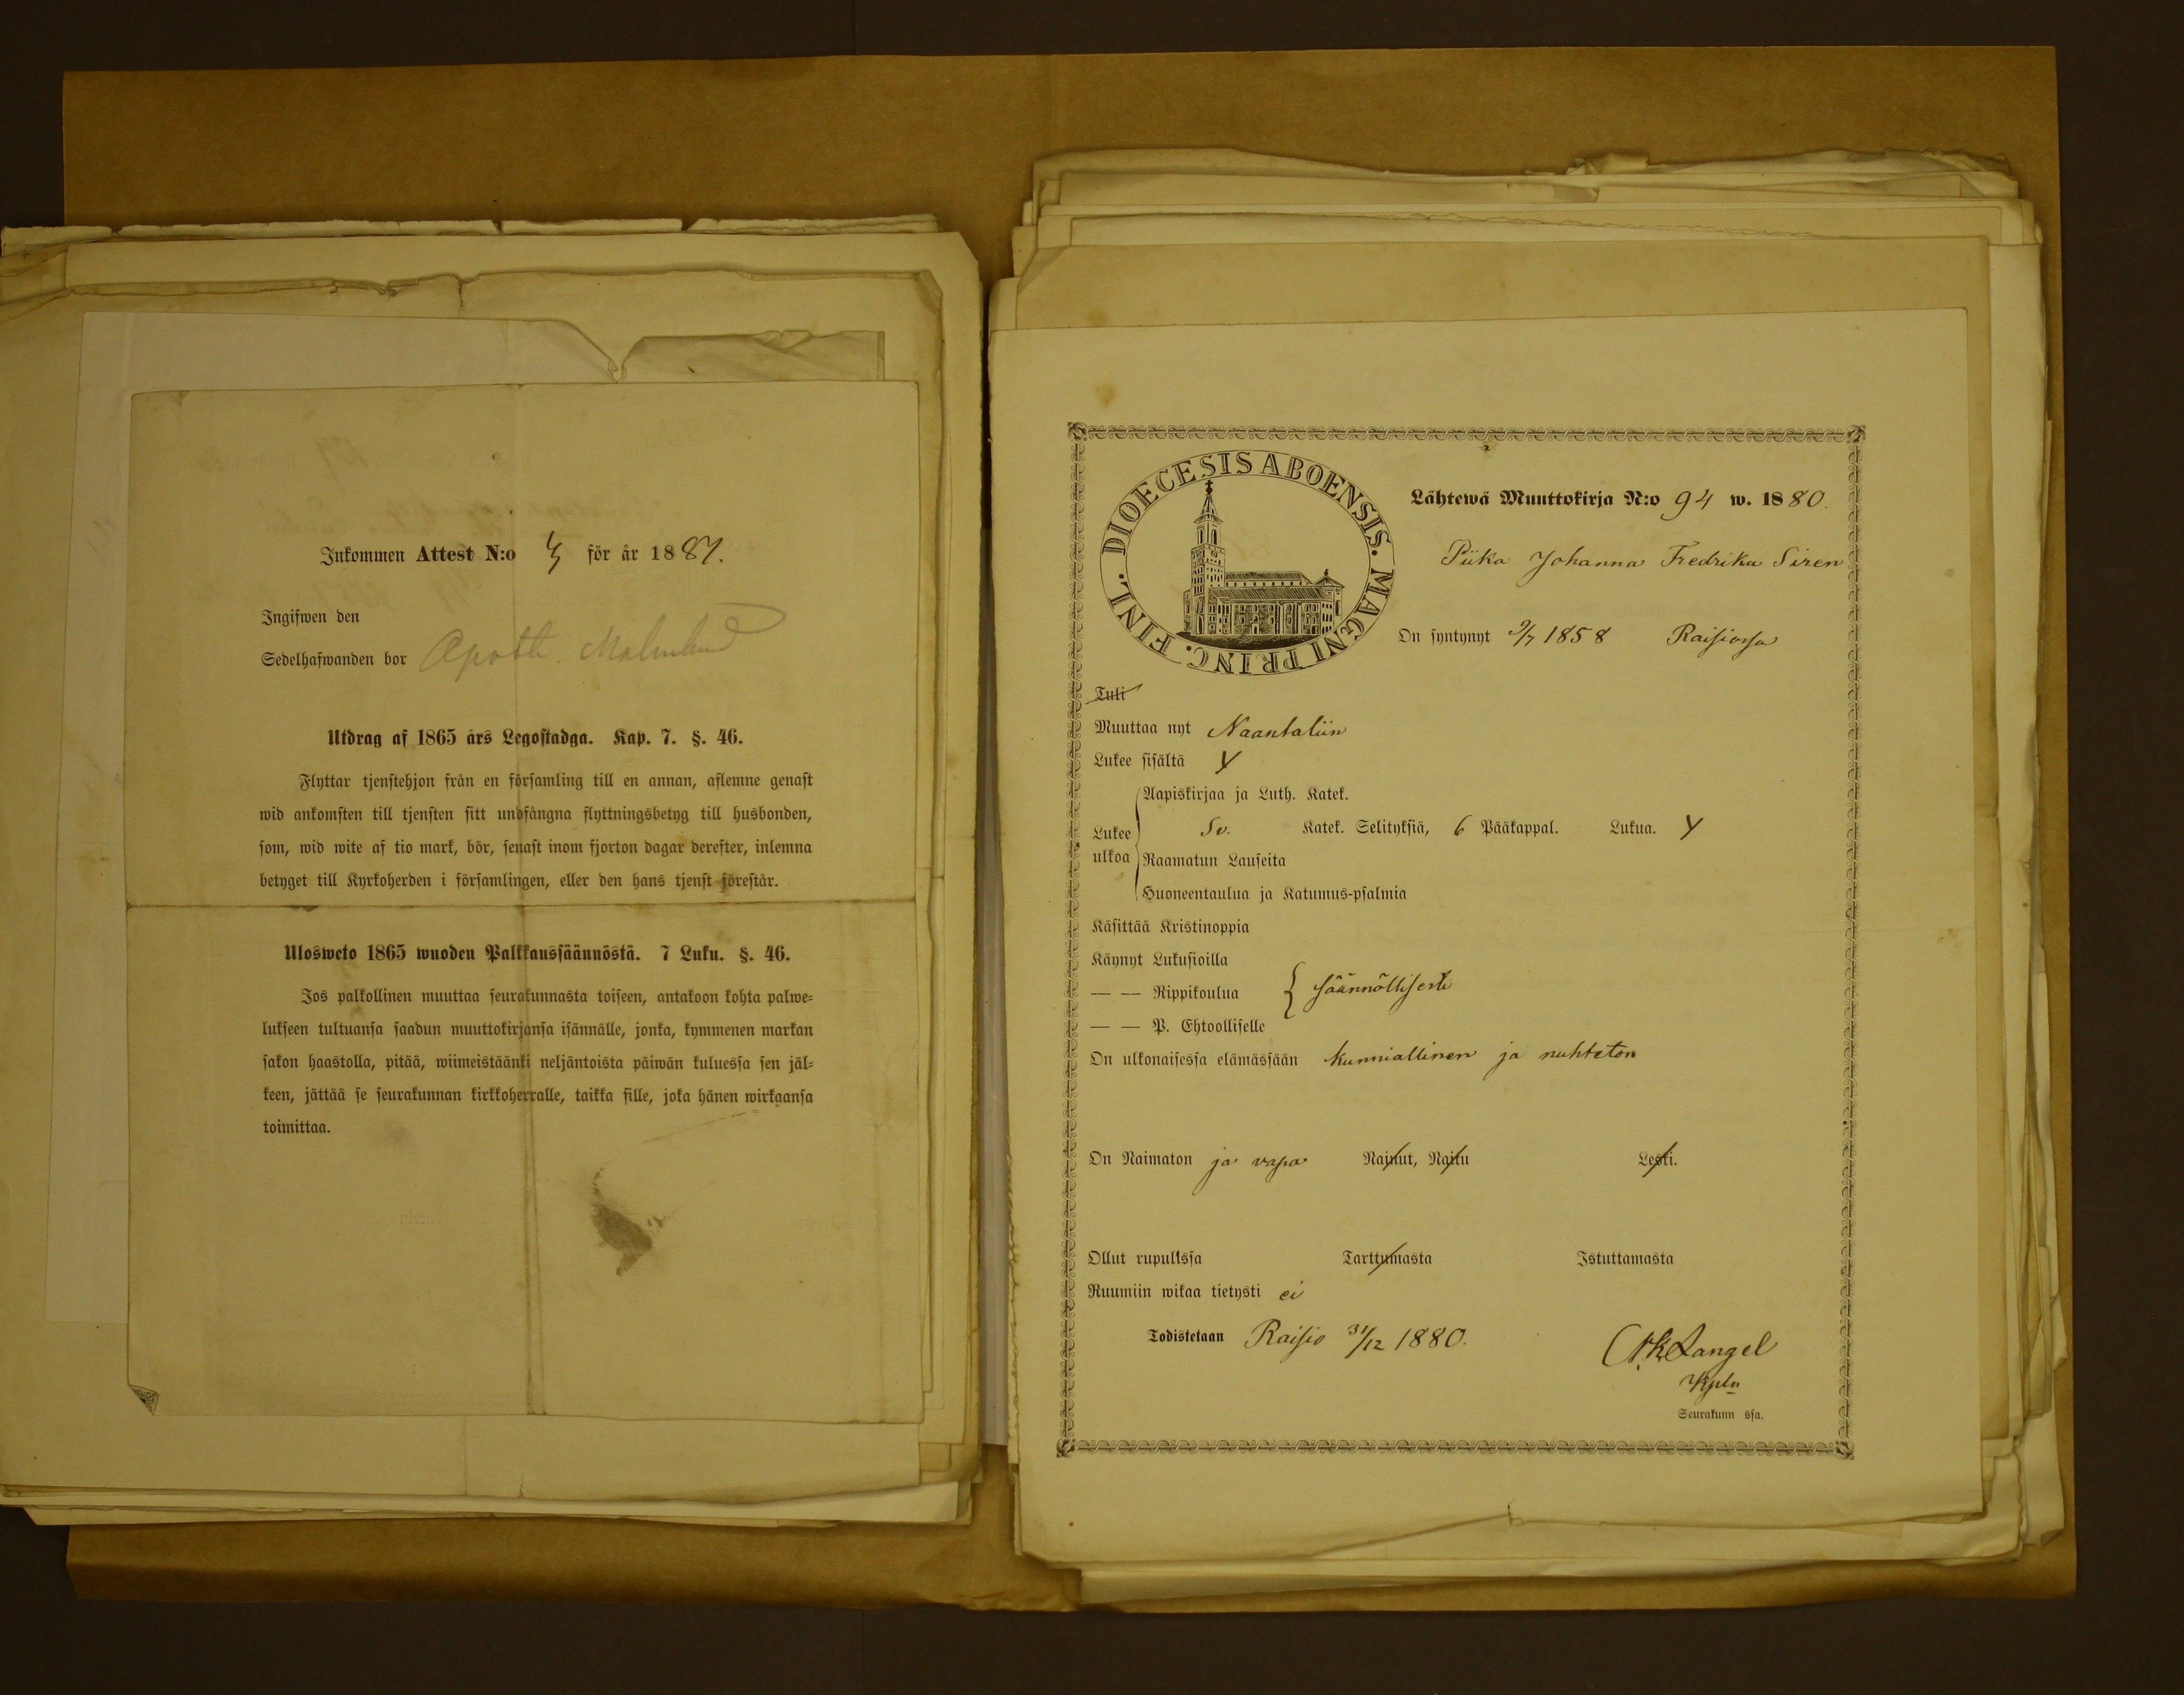 Inkommen Attest N:o för år 1881.
Ingifwen den
Sedelhafwanden bor Apoth. Malmlund
Utdrag af 1865 års Legostadga. Kap. 7. §. 46.
Flyttar tjenstehjon från en församling till en annan, aflemne genast
wid ankomsten till tjensten sitt undfångna flyttningsbetyg till husbonden,
som, wid wite af tio mark, bör, senast inom fjorton dagar derefter, inlemna
betyget till Kyrkoherden i församlingen, eller den hans tjenst förestår.
Ulosweto 1865 wuoden Palkkaussäännöstä. 7 Luku. §. 46.
Jos palkollinen muuttaa seurakunnasta toiseen, antakoon kohta palwe=
lukseen tultuansa saadun muuttokirjansa isännälle, jonka, kymmenen markan
sakon haastolla, pitää, wiimeistäänki neljäntoista päiwän kuluessa sen jäl=
keen, jättää se seurakunnan kirkkoherralle, taikka sille, joka hänen wirkaansa
toimittaa.
DIOECESIS ABOENSIS. MAGNI PRINC. FINL.
Lähtewä Muuttokirja N:o 94 w. 1880.
Piika Johanna Fredrika Siren
On syntynyt 9/7 1858 Raisiossa
Tuli
Muuttaa nyt Naantaliin
Lukee sisältä Y
Aapiskirjaa ja Luth. Katek.
Lukee ulkoa Sv. Katek. Selityksiä, 6 Pääkappal. Lukua. Y
Raamatun Lauseita
Huoneentaulua ja Katumus-psalmia
Käsittää Kristinoppia
Käynyt Lukusioilla
— — Rippikoulua säännöllisesti
— — P. Ehtoolliselle
On ulkonaisessa elämässään kunniallinen ja nuhteton
On Naimaton ja vapa Nainut, Naitu Leski.
Ollut rupulissa Tarttumasta Istuttamasta
Ruumiin wikaa tietysti ei
Todistetaan Raisio 31/12 1880.
Langel
Kpln
Seurakunn ssa.